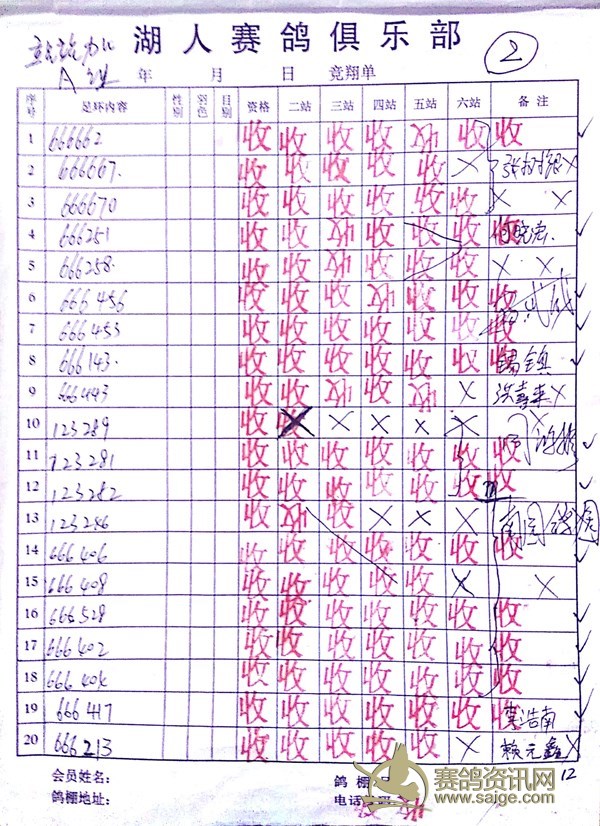 湖人赛鸽俱乐部
2
A组 年 月 日 竞翔单
序号 足环内容 性别 羽色 目别 资格 二站 三站 四站 五站 六站 备注
1 666662 收 收 收 收 收 收 收 ✓
2 666667 收 收 收 收 收 × ×
3 666670 收 收 收 收 收 收 × ×
4 666251 收 收 收 收 收 收 收 ✓
5 666258 收 收 收 收 收 收 × ×
6 666456 收 收 收 收 收 收 收 ✓
7 666453 收 收 收 收 收 收 收 ✓
8 666143 收 收 收 收 收 收 收 ✓
9 666443 收 收 收 收 收 × ×
10 123289 收 收 × × × × ×
11 123281 收 收 收 收 收 收 收 ✓
12 123282 收 收 收 收 收 收 收 ✓
13 123286 收 收 收 × × ×
14 666406 收 收 收 收 收 收 收 ✓
15 666408 收 收 收 收 收 × ×
16 666528 收 收 收 收 收 收 收 ✓
17 666402 收 收 收 收 收 收 收 ✓
18 666404 收 收 收 收 收 收 收 ✓
19 666417 收 收 收 收 收 收 收 李浩南 ✓
20 666213 收 收 收 收 收 × 赖元鑫 ×
会员姓名: 鸽棚 12
鸽棚地址: 电话 收
赛鸽资讯网
www.saige.com